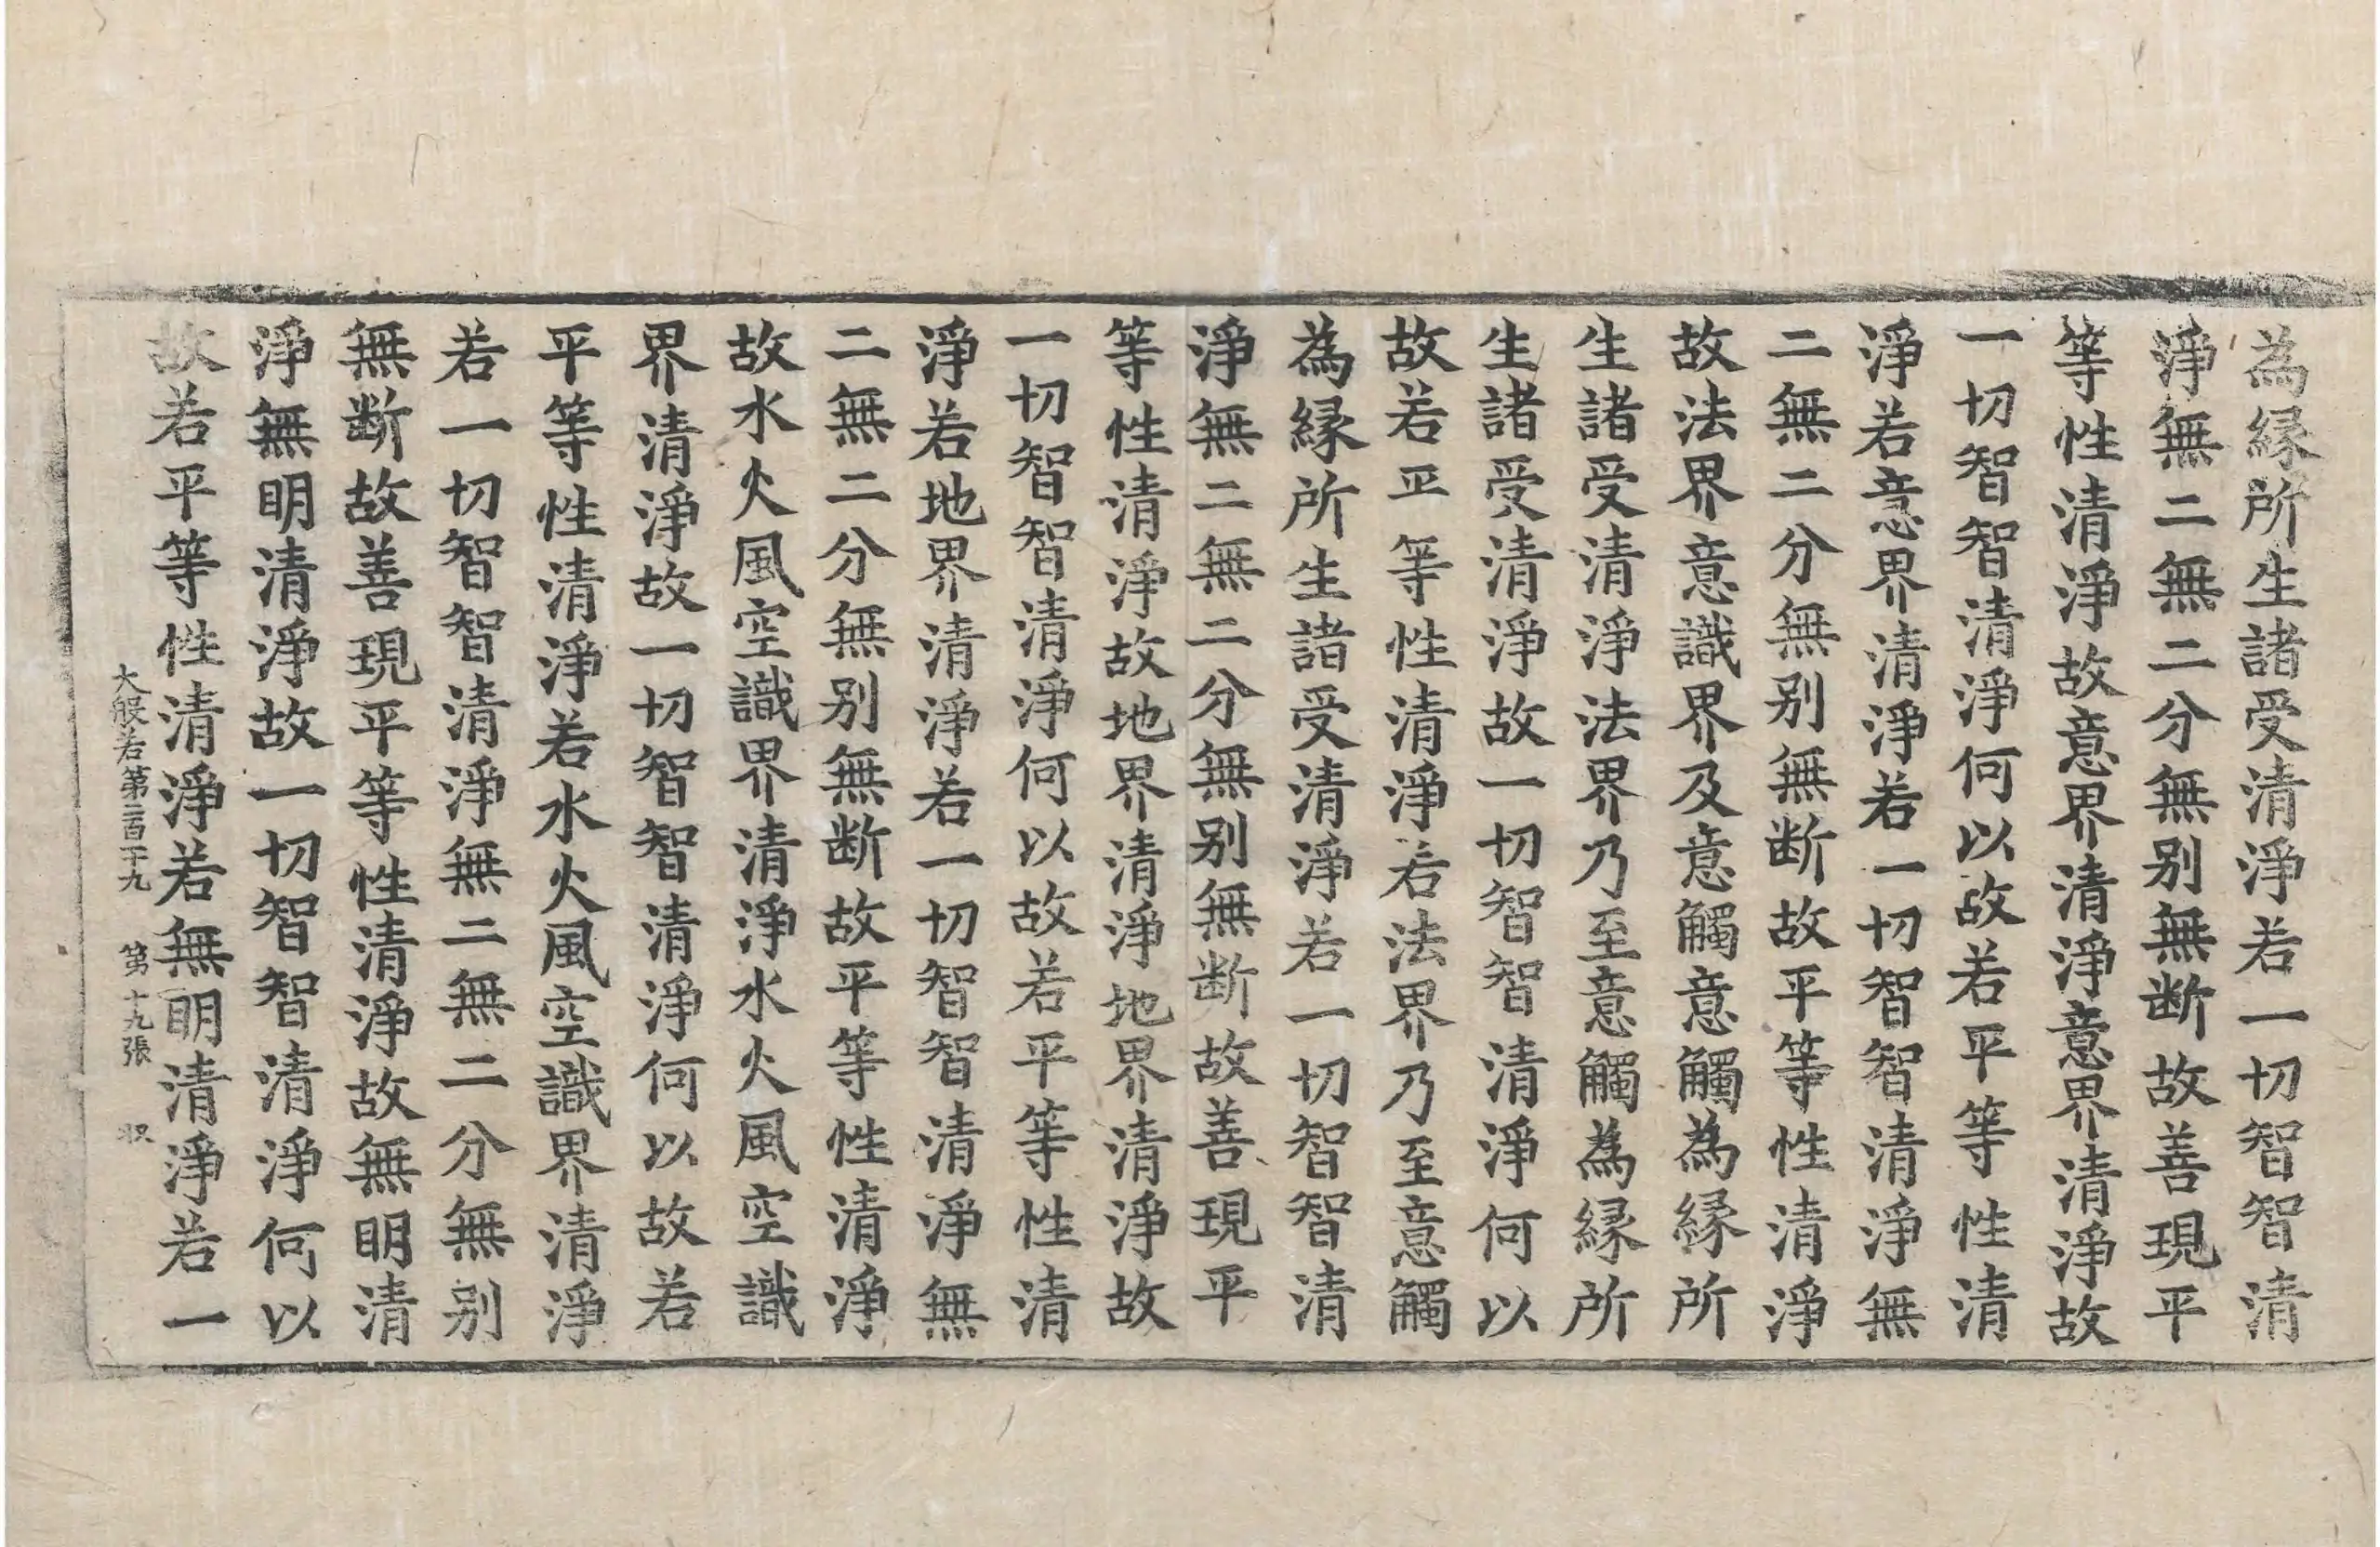 為縁所生諸受清淨若一切智智清
淨無二無二分無別無断故善現平
等性清淨故意界清淨意界清淨故
一切智智清淨何以故若平等性清
淨若意界清淨若一切智智清淨無
二無二分無別無断故平等性清淨
故法界意識界及意觸意觸為縁所
生諸受清淨法界乃至意觸為縁所
生諸受清淨故一切智智清淨何以
故若平等性清淨若法界乃至意觸
為縁所生諸受清淨若一切智智清
淨無二無二分無別無断故善現平
等性清淨故地界清淨地界清淨故
一切智智清淨何以故若平等性清
淨若地界清淨若一切智智清淨無
二無二分無別無断故平等性清淨
故水火風空識界清淨水火風空識
界清淨故一切智智清淨何以故若
平等性清淨若水火風空識界清淨
若一切智智清淨無二無二分無別
無断故善現平等性清淨故無明清
淨無明清淨故一切智智清淨何以
故若平等性清淨若無明清淨若一
大般若第二百十九 第十九張